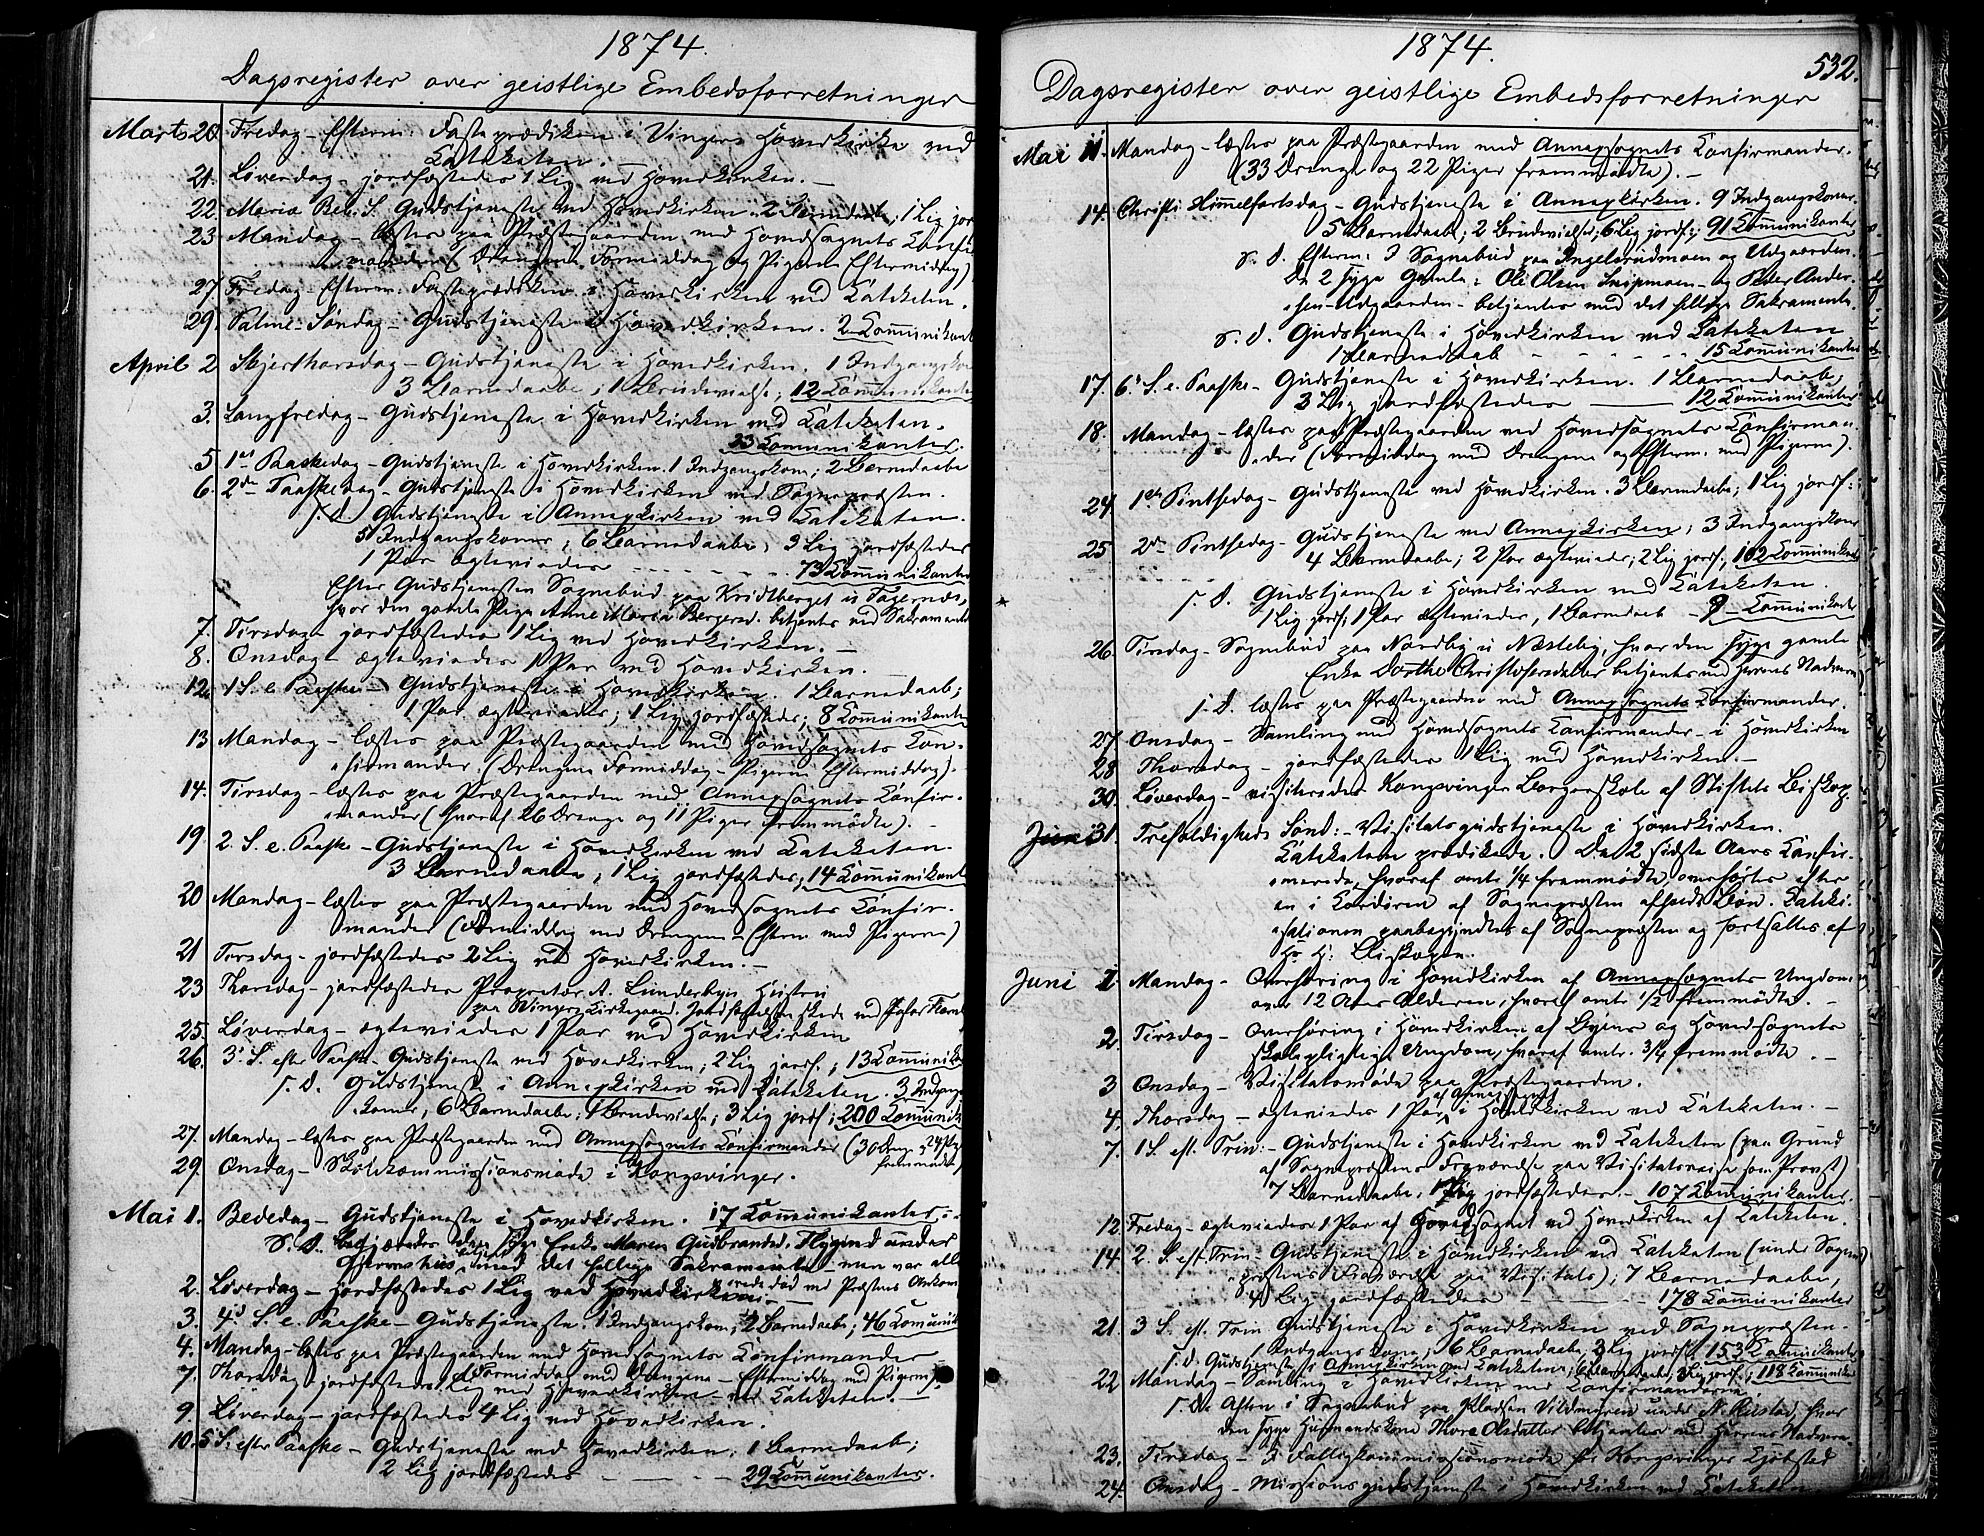 1874.
Dagsregister over geistlige Embedsforretninger
Marts 20. Fredag – Efterm: Fasteprædiken i Vingers Hovedkirke ved
Catekethen. –
21. Løverdag – jordfæstedes 1 Lig ved Hovedkirken. –
22. Mariæ Beb. D. Gudstjeneste ved Hovedkirken. 2 Barnedaabe, 1 Lig jor
23 Mandag – læstes paa Præstegaarden med Hovedsognets Confir
manden (Drengene Formiddag og Pigerne Eftermiddag)
27. Fredag – Efterm. Fasteprædiken i Hovedkirken ved Catekethen.
29. Palme-Søndag – Gudstjeneste i Hovedkirken. 2 Communikant
April 2 Skjerthorsdag – Gudstjeneste i Hovedkirken. 1 Indgangsko
3 Barnedaabe; 1 Brudevielse; 12 Communikanter
3. Langfredag – Gudstjeneste i Hovedkirken ved Catekethen.
23 Communikanter.
5 1st Paaskedag – Gudstjeneste i Hovedkirken. 1 Indgangskone; 2 Barnedaabe
6. 2den Paaskedag – Gudstjeneste i Hovedkirken ved Sognepræsten.
S. D. Gudstjeneste i Annexkirken ved Catekethen.
5 Indgangskoner; 6 Barnedaabe, 3 Lig jordfæstedes
1 Par ægteviedes – – – – 73 Communikanter
Efter Gudstjenesten Sognebud paa Kridtberget u. Fagernæs,
hvor den gamle Pige Anne Maria Bergersd. betjentes ved Sakramentet
7. Tirsdag – jordfæstedes 1 Lig ved Hovedkirken. –
8. Onsdag – ægteviedes 1 Par ved Hovedkirken
12. 1 S. e. Paaske – Gudstjeneste i Hovedkirken. 1 Barnedaab;
1 Par ægteviedes; 1 Lig jordfæstedes; 8 Communikanter
13 Mandag – læstes paa Præstegaarden med Hovedsognets Con-
firmander. (Drengene Formiddag – Pigerne Eftermiddag).
14. Tirsdag – læstes paa Præstegaarden med Annexsognets Confir-
mander (hvoraf 26 Drenge og 11 Piger fremmødte). –
19 2. S. e. Paaske – Gudstjeneste i Hovedkirken ved Catekethen.
3 Barnedaabe; 1 Lig jordfæstedes; 14 Communikant
20 Mandag – læstes paa Præstegaarden med Hovedsognets Confir-
mander (Formiddag med Drengene – Efterm med Pigerne)
21 Tirsdag – jordfæstedes 2 Lig ved Hovedkirken. –
23 Thorsdag – jordfæstedes Proprietær A. Lunderbyes Hustru
paa Vingers Kirkegaard.
25. Løverdag – ægteviedes 1 Par ved Hovedkirken
26. 3' S. efter Paaske – Gudstjeneste ved Hovedkirken, 2 Lig jordf.; 13 Communik
S. D. Gudstjeneste i Annexkirken ved Catekethen. 3 Indgangs
koner; 6 Barnedaabe; 1 Brudevielse; 3 Lig jordf; 200 Communik
27. Mandag – læstes paa Præstegaarden med Annexsognets Confirmander (30 Drenge 24 Pig
fremmødte)
29. Onsdag – Skolekommissionsmøde i Kongsvinger.
Mai 1. Bededag – Gudstjeneste i Hovedkirken. 17 Communikanter. –
S. D. Enke Maren Gudbrandsd. under
med det hellige Sakramente – men var all
rede død ved Præstens Ankom
2. Løverdag – jordfæstedes 1 Lig ved Hovedkirken. –
3. 4d S. e. Paaske – Gudstjeneste. 1 Indgangskone; 2 Barnedaabe; 46 Comunik
4. Mandag – læstes paa Præstegaarden med Hovedsognets Confirmander
(Formiddag med Drengene – Eftermiddag med Pigerne)
7. Thorsdag – jordfæstedes Lig ved Hovedkirken ved Catekethen. –
9. Løverdag – jordfæstedes 4 Lig ved Hovedkirken.
10. 5 S. efter Paaske – Gudstjeneste ved Hovedkirken; 1 Barnedaab;
2 Lig jordfæstedes – – – 29 Communikanter.
1874.
532.
Dagsregister over geistlige Embedsforretninger
Mai 11. Mandag – læstes paa Præstegaarden med Annexsognets Confirmander.
(33 Drenge og 22 Piger fremmødte). –
14. Christi Himmelfartsdag – Gudstjeneste i Annexkirken. 9 Indgangskoner,
5 Barnedaabe; 2 Brudevielser; 6 Lig jordf:; 91 Communikanter
S. D. Efterm: 3 Sognebud paa Ingelsrudmoen og Udgaarden.
De 2 syge Gamle: Ole Olsen Snipmoen – og Peder Ander-
sen – Udgaarden – betjentes med det hellige Sakramente.
S. D. Gudstjeneste i Hovedkirken ved Catekethen
1 Barnedaab – – – – 15 Communikanter
17. 6' S. e. Paaske – Gudstjeneste i Hovedkirken. 1 Barnedaab;
3 Lig jordfæstedes – 12 Communikanter
18. Mandag – læstes paa Præstegaarden ved Hovedsognets Confirman
der (Formiddag med Drengene og Efterm. med Pigerne).
24. 1ste Pintsedag – Gudstjeneste ved Hovedkirken. 3 Barnedaabe; 1 Lig jordf:
25 2den Pintsedag – Gudstjeneste ved Annexkirken; 3 Indgangskoner
4 Barnedaabe; 2 Par ægteviedes; 2 Lig jordf., 102 Communikant
S. D. Gudstjeneste i Hovedkirken ved Catekethen.
1 Lig jordf; 1 Par ægteviedes, 1 Barnedaab – 9 – Communikanter
26. Tirsdag – Sognebud paa Nordby u. Næsteby, hvor den syge gamle
Enke Dorthe Christofersdatter betjentes med Herrens Nadvere
S. D. læstes paa Præstegaarden med Annexsognets Confirmander.
27 Onsdag – Samling med Hovedsognets Confirmander – i Hovedkirken
28 Thorsdag – jordfæstedes 1 Lig ved Hovedkirken. –
30. Løverdag – visiteredes Kongsvinger Borgerskole af Stiftets Biskop.
Juni 31. Trefoldigheds Sønd: – Visitatsgudstjeneste i Hovedkirken.
Catekethen prædikede. De 2 sidste Aars Confir-
merede, hvoraf omtr 1/4 fremmødte, overhørtes efter
en i Chordøren af Sognepræsten afholdt Bøn. Cateki-
sationen paabegyndtes af Sognepræsten og fortsattes af
Hr. H: Biskopen.
Juni 1. Mandag – Overhøring i Hovedkirken af Annexsognets Ungdom
over 12 Aars Alderen, hvoraf omtr 1/2 fremmødte. –
2. Tirsdag – Overhøring i Hovedkirken af Byens og Hovedsognets
skolepligtige Ungdom, hvoraf omtr. 3/4 fremmødte. –
3 Onsdag – Visitatsmøde paa Præstegaarden.
af Annexsognet
4. Thorsdag – ægteviedes 1 Par i Hovedkirken ved Catekethen. –
7. 1 S. eft. Trin: – Gudstjeneste i Hovedkirken ved Catekethen (paa Grund
af Sognepræstens Fraværelse paa Visitatsreise som Provst)
7 Barnedaabe; 1 Lig jordfæstedes. – 107 Communikanter.
12. Fredag – ægteviedes 1 Par af Hovedsognet ved Hovedkirken af Catekethen.
14. 2. S. eft. Trin – Gudstjeneste i Hovedkirken ved Catekethen (under Sogne
præstens Fraværelse paa Visitats); 7 Barnedaabe,
4 Lig jordfæstedes – – – 178 Communikanter
21. 3 S. eft. Trin Gudstjeneste i Hovedkirken ved Sognepræsten.
1 Indgangskone, 6 Barnedaabe, 2 Lig jordf. 153 Communikanter
S. D. Gudstjeneste i Annexkirken ved Catekethen; 6 Barnedaabe, 3 Lig jordf.; 118 Communikan
22 Mandag – Samling i Hovedkirken med Confirmanderne.
S. D. Aften i Sognebud paa Pladsen Vildmyren under N. Rustad, hvor
den syge Husmandskone Thore Olsdatter betjentes med Herrens Nadvere.
23. Tirsdag – i Fattigkommissionsmøde for Kongsvinger Kjøbsted
24. Onsdag – Missionsgudstjeneste i Hovedkirken ved Catekethen